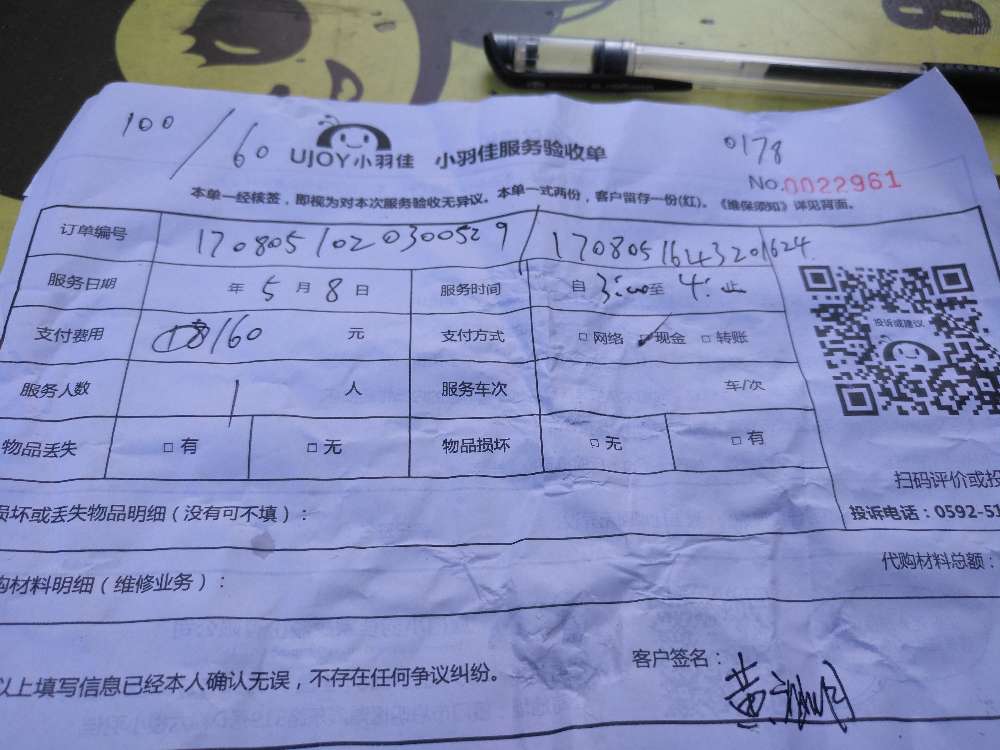 100 / 60
UJOY小羽佳 小羽佳服务验收单
0178
No.0022961
本单一经核签,即视为对本次服务验收无异议。本单一式两份,客户留存一份(红)。《维保须知》详见背面。
订单编号 1708051020300529 / 1708051643201624
服务日期 年 5 月 8 日 服务时间 自 3:00 至 4: 止
支付费用 160 元 支付方式 □ 网络 ☑ 现金 □ 转账
投诉或建议
服务人数 1 人 服务车次 车/次
物品丢失 □ 有 □ 无 物品损坏 □ 无 □ 有
扫码评价或投
损坏或丢失物品明细(没有可不填):
投诉电话:0592-51
购材料明细(维修业务):
代购材料总额:
以上填写信息已经本人确认无误,不存在任何争议纠纷。
客户签名:黄